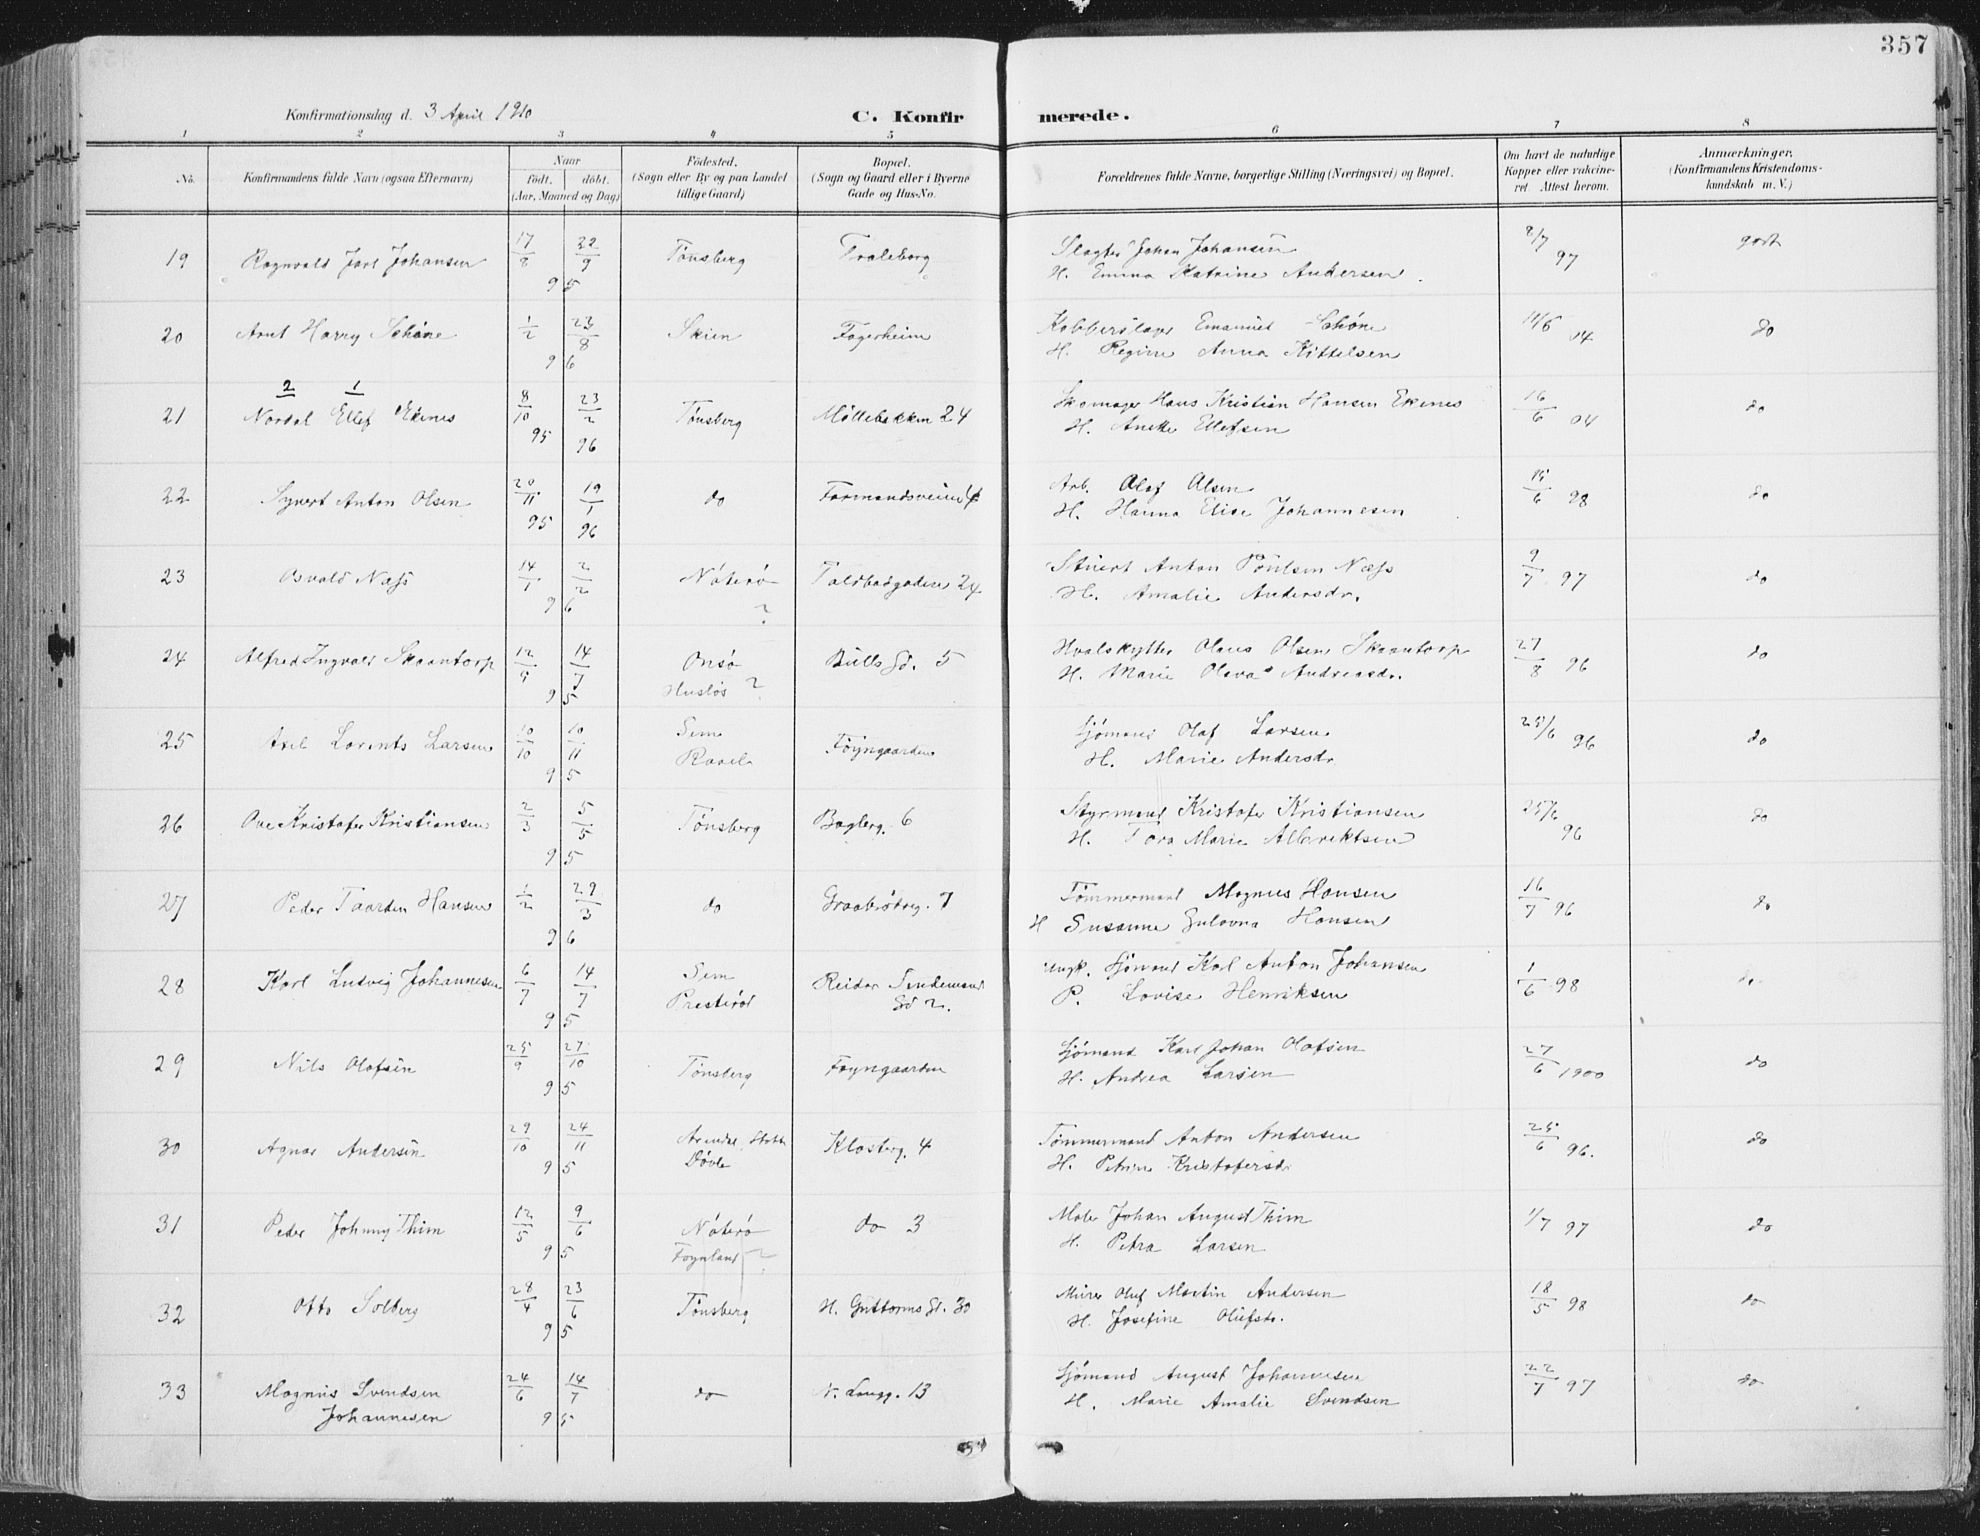 357
Konfirmationsdag d. 3 April 1910
C. Konfirmerede.
1 2 3 4 5 6 7 8
No.
Konfirmandens fulde Navn (ogsaa Efternavn)
Naar
født. døbt.
(Aar, Maaned og Dag)
Fødested.
(Sogn eller By og paa Landet
tillige Gaard)
Bopæl.
(Sogn og Gaard eller i Byerne
Gade og Hus-No.
Forældrenes fulde Navne, borgerlige Stilling (Næringsvei) og Bopæl.
Om havt de naturlige
Kopper eller vakcine-
ret. Attest herom.
Anmærkninger.
(Konfirmandens Kristendoms-
kundskab m. V.)
19 Ragnvald Jarl Johansen 17/8 22/9 95 Tønsberg Træleborg Slagter Johan Johansen 8/7 97 godt
H. Emma Katrine Andersen
20 Arnt Harry Schøne 1/2 23/8 96 Skien Fagerheim Kobberslager Emanuel Schøne 14/6 04 do
H. Regine Anna Kittelsen
2 1
21 Nordal Ellef Ekenes 8/10 95 23/2 96 Tønsberg Møllebakken 24 Skomager Hans Kristian Hansen Ekenes 16/6 04 do
H. Anette Ellefsen
22 Syvert Anton Olsen 20/11 95 19/1 96 do Farmandsveien 4 Arb. Olaf Olsen 15/6 98 do
H. Hanna Elise Johannesen
23 Osvald Næss 14/1 2/2 96 Nøterø ? Toldbodgaden 24 Stuert Anton Poulsen Næss 9/7 97 do
H. Amalie Andersdr.
24 Alfred Ingvald Skaantorp 12/5 14/7 95 Onsø Bulls Gd. 5 Hvalskytter Olaus Olsen Skaantorp 27/8 96 do
Husløs ? H. Marie Olava Andreasdr.
25 Axel Lorents Larsen 10/10 10/11 95 Sem Føyngaarden Sjømand Olaf Larsen 25/6 96 do
Raael H. Marie Andersdr
26 Ove Kristofer Kristiansen 2/3 5/5 95 Tønsberg Baglerg. 6 Styrmand Kristofer Kristiansen 25/6 96 do
H. Tora Marie Albrektsen
27 Peder Taarden Hansen 1/2 29/3 96 do Graabrødreg. 7 Tømmermand Magnus Hansen 16/7 96 do
H Susanne Gulovna Hansen
28 Karl Ludvig Johannesen 6/7 14/7 95 Sem Reidar Sendemand Ungk. Sjømand Karl Anton Johansen 1/6 98 do
Presterød Gd 2. P. Lovise Henriksen
29 Nils Olafsen 25/9 27/10 95 Tønsberg Føyngaarden Sjømand Karl Johan Olafsen 27/6 1900 do
H. Andrea Larsen
30 Agnar Andersen 29/10 24/11 95 Arendal Klosterg. 4 Tømmermand Anton Andersen 25/6 96. do
H. Petrine Kristofersdr
31 Peder Johnny Thim 12/5 9/6 95 Nøterø do 3 Maler Johan August Thim 1/7 97 do
Føynland ? H. Petra Larsen
32 Otto Solberg 28/4 23/6 95 Tønsberg H. Guttorms Gd. 30 Murer Oluf Martin Andersen 18/5 98 do
H. Josefine Olufsdr.
33 Magnus Svendsen 24/6 14/7 95 do N. Langg. 13 Sjømand August Johannesen 22/7 97 do
Johannesen H. Marie Amalie Svendsen